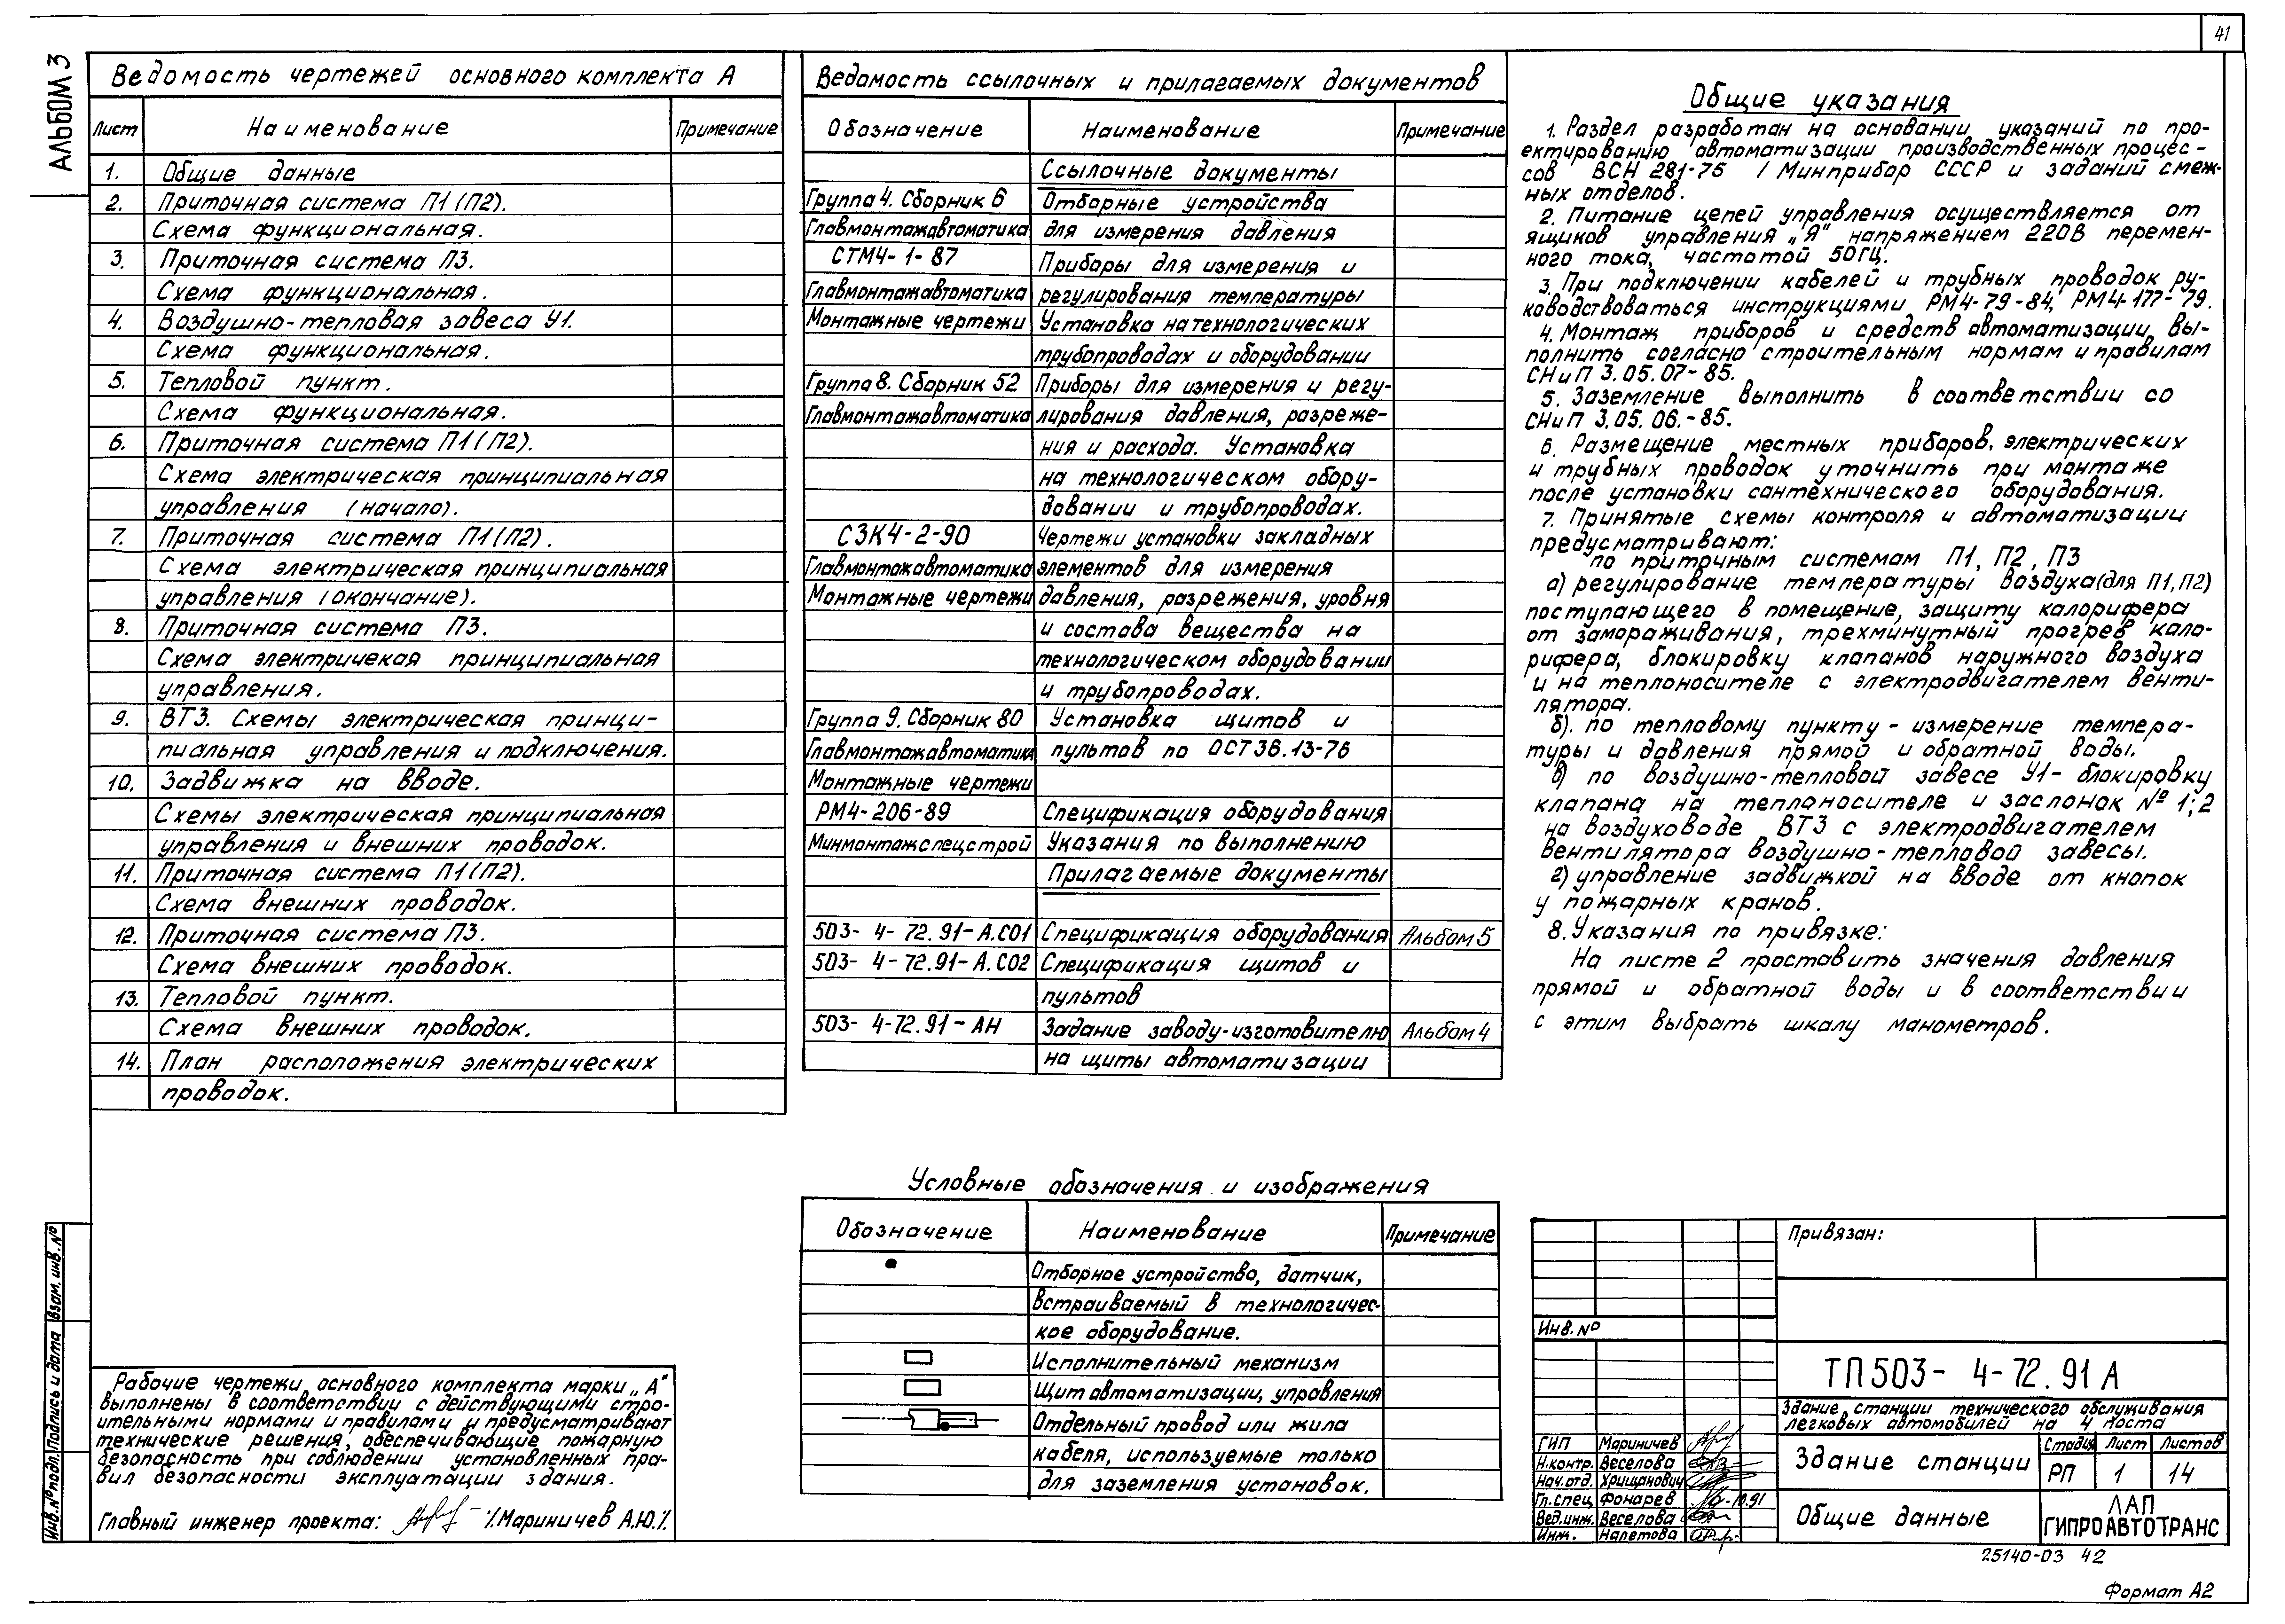 41
АЛЬБОМ 3
Ведомость чертежей основного комплекта А
Лист Наименование Примечание
1. Общие данные
2. Приточная система П1(П2).
Схема функциональная.
3. Приточная система П3.
Схема функциональная.
4. Воздушно-тепловая завеса У1.
Схема функциональная.
5. Тепловой пункт.
Схема функциональная.
6. Приточная система П1(П2).
Схема электрическая принципиальная
управления (начало).
7. Приточная система П1(П2).
Схема электрическая принципиальная
управления (окончание).
8. Приточная система П3.
Схема электричекая принципиальная
управления.
9. ВТЗ. Схемы электрическая принци-
пиальная управления и подключения.
10. Задвижка на вводе.
Схемы электрическая принципиальная
управления и внешних проводок.
11. Приточная система П1(П2).
Схема внешних проводок.
12. Приточная система П3.
Схема внешних проводок.
13. Тепловой пункт.
Схема внешних проводок.
14. План расположения электрических
проводок.
Ведомость ссылочных и прилагаемых документов
Обозначение Наименование Примечание
Ссылочные документы
Группа 4. Сборник 6 Отборные устройства
Главмонтажавтоматика для измерения давления
СТМ4-1-87 Приборы для измерения и
Главмонтажавтоматика регулирования температуры
Монтажные чертежи Установка на технологических
трубопроводах и оборудовании
Группа 8. Сборник 52 Приборы для измерения и регу-
Главмонтажавтоматика лирования давления, разреже-
ния и расхода. Установка
на технологическом обору-
довании и трубопроводах.
СЗК4-2-90 Чертежи установки закладных
Главмонтажавтоматика элементов для измерения
Монтажные чертежи давления, разрежения, уровня
и состава вещества на
технологическом оборудовании
и трубопроводах.
Группа 9. Сборник 80 Установка щитов и
Главмонтажавтоматика пультов по ОСТ36.13-76
Монтажные чертежи
РМ4-206-89 Спецификация оборудования
Минмонтажспецстрой Указания по выполнению
Прилагаемые документы
503-4-72.91-А.СО1 Спецификация оборудования Альбом 5
503-4-72.91-А.СО2 Спецификация щитов и
пультов
503-4-72.91-АН Задание заводу-изготовителю Альбом 4
на щиты автоматизации
Общие указания
1. Раздел разработан на основании указаний по про-
ектированию автоматизации производственных процес-
сов ВСН 281-75 / Минприбор СССР и заданий смеж-
ных отделов.
2. Питание цепей управления осуществляется от
ящиков управления „Я" напряжением 220В перемен-
ного тока, частотой 50ГЦ.
3. При подключении кабелей и трубных проводок ру-
ководствоваться инструкциями РМ4-79-84, РМ4-177-79.
4. Монтаж приборов и средств автоматизации вы-
полнить согласно строительным нормам и правилам
СНиП 3.05.07-85.
5. Заземление выполнить в соответствии со
СНиП 3.05.06.-85.
6. Размещение местных приборов, электрических
и трубных проводок уточнить при монтаже
после установки сантехнического оборудования.
7. Принятые схемы контроля и автоматизации
предусматривают:
по приточным системам П1, П2, П3
а) регулирование температуры воздуха(для П1,П2)
поступающего в помещение, защиту калорифера
от замораживания, трехминутный прогрев кало-
рифера, блокировку клапанов наружного воздуха
и на теплоносителе с электродвигателем венти-
лятора.
б). по тепловому пункту - измерение темпера-
туры и давления прямой и обратной воды.
в) по воздушно-тепловой завесе У1- блокировку
клапана на теплоносителе и заслонок № 1;2
на воздуховоде ВТЗ с электродвигателем
вентилятора воздушно-тепловой завесы.
г) управление задвижкой на вводе от кнопок
у пожарных кранов.
8. Указания по привязке:
На листе 2 проставить значения давления
прямой и обратной воды и в соответствии
с этим выбрать шкалу манометров.
Условные обозначения и изображения
Обозначение Наименование Примечание
Отборное устройство, датчик,
встраиваемый в технологичес-
кое оборудование.
Исполнительный механизм
Щит автоматизации, управления
Отдельный провод или жила
кабеля, используемые только
для заземления установок.
Рабочие чертежи основного комплекта марки „А"
выполнены в соответствии с действующими стро-
ительными нормами и правилами и предусматривают
технические решения, обеспечивающие пожарную
безопасность при соблюдении установленных пра-
вил безопасности эксплуатации здания.
Главный инженер проекта: /.Мариничев А.Ю./.
Инв.№подл. Подпись и дата Взам. инв.№
Привязан:
Инв. №
ТП503-4-72.91 А
Здание станции технического обслуживания
легковых автомобилей на 4 поста
ГИП Мариничев
Н.контр. Веселова
Нач.отд. Хрищанович
Гл.спец Фонарев 10.91
Вед.инж. Веселова
Инж. Налетова
Здание станции
Стадия Лист Листов
РП 1 14
Общие данные
ЛАП
ГИПРОАВТОТРАНС
25140-03 42
Формат А2